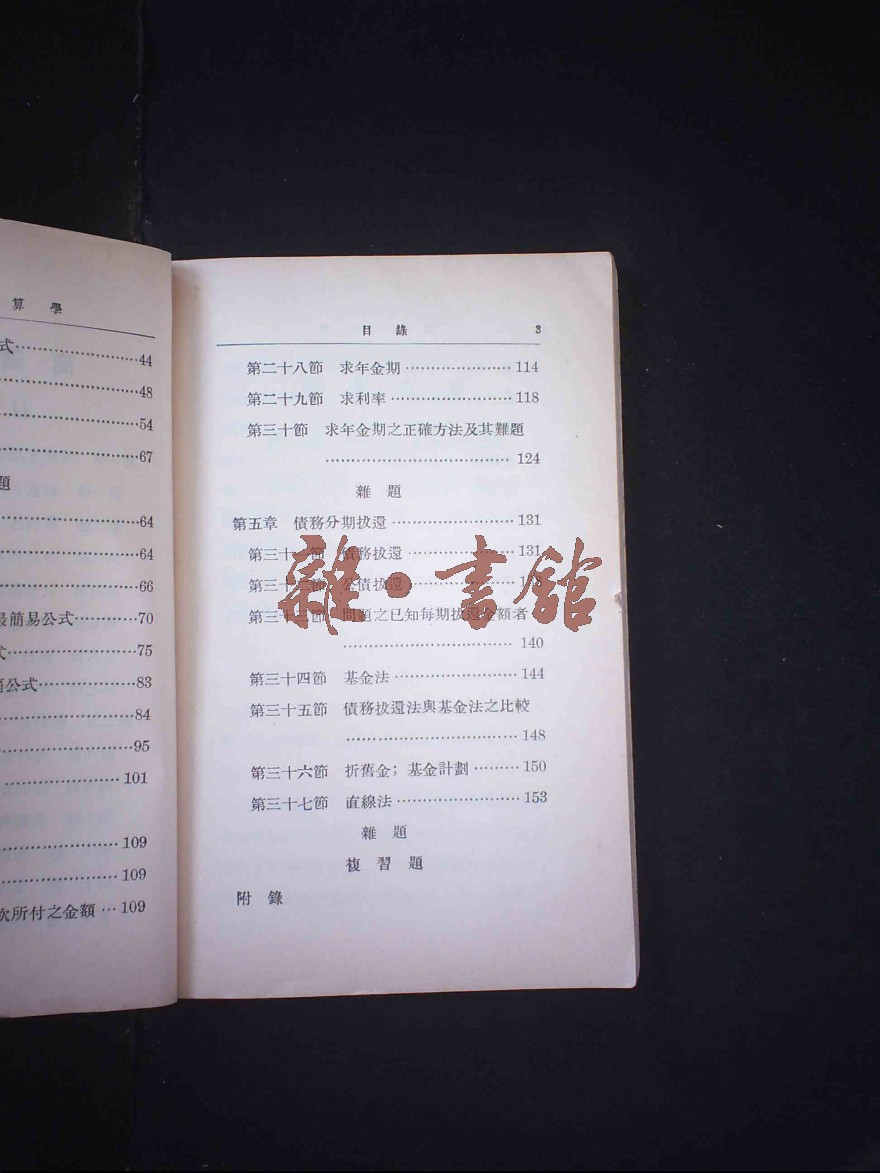 算 學
式……………………44
……………………48
……………………54
……………………67
題
……………………64
……………………64
……………………66
最簡易公式…………70
式……………………75
公式………………83
……………………84
……………………95
…………………… 101
…………………… 109
…………………… 109
次所付之金額 … 109
目 錄 3
第二十八節 求年金期 ………………… 114
第二十九節 求利率 …………………… 118
第三十節 求年金期之正確方法及其難題
……………………………… 124
雜 題
第五章 債務分期拔還 …………………… 131
第三十一節 債務拔還 ………………… 131
第三十二節 公債拔還 …………………
第三十三節 問題之已知每期拔還金額者
…………………………… 140
第三十四節 基金法 …………………… 144
第三十五節 債務拔還法與基金法之比較
…………………………… 148
第三十六節 折舊金；基金計劃 ……… 150
第三十七節 直線法 …………………… 153
雜 題
複 習 題
附 錄
雜·書館